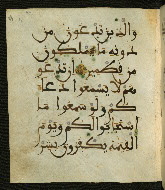 والذين تدعون من
دونه ما يملكون
من قطمير ان تدعو
هم لا يسمعوا دعا
كم ولو سمعوا ما
استجابوا لكم ويوم
القيمة يكفرون بشر